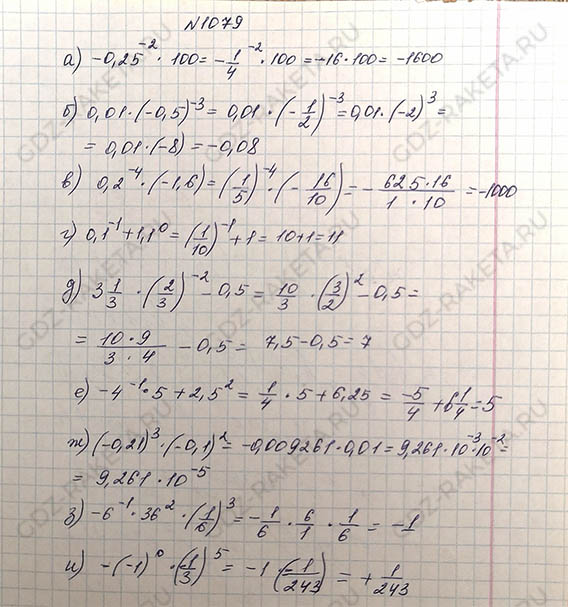 №1079
а) -0,25⁻² · 100 = -1/4⁻² · 100 = -16 · 100 = -1600
б) 0,01 · (-0,5)⁻³ = 0,01 · (-1/2)⁻³ = 0,01 · (-2)³ =
= 0,01 · (-8) = -0,08
в) 0,2⁻⁴ · (-1,6) = (1/5)⁻⁴ · (-16/10) = - 625 · 16 / 1 · 10 = -1000
г) 0,1⁻¹ + 1,1⁰ = (1/10)⁻¹ + 1 = 10 + 1 = 11
д) 3 1/3 · (2/3)⁻² - 0,5 = 10/3 · (3/2)² - 0,5 =
= 10 · 9 / 3 · 4 - 0,5 = 7,5 - 0,5 = 7
е) -4⁻¹ · 5 + 2,5² = 1/4 · 5 + 6,25 = -5/4 + 6 1/4 = 5
ж) (-0,21)³ · (-0,1)² = -0,009261 · 0,01 = 9,261 · 10⁻³ · 10⁻² =
= 9,261 · 10⁻⁵
з) -6⁻¹ · 36² · (1/6)³ = -1/6 · 6/1 · 1/6 = -1
и) -(-1)⁰ · (1/3)⁵ = -1 (-1/243) = + 1/243
GDZ-RAKETA.RU